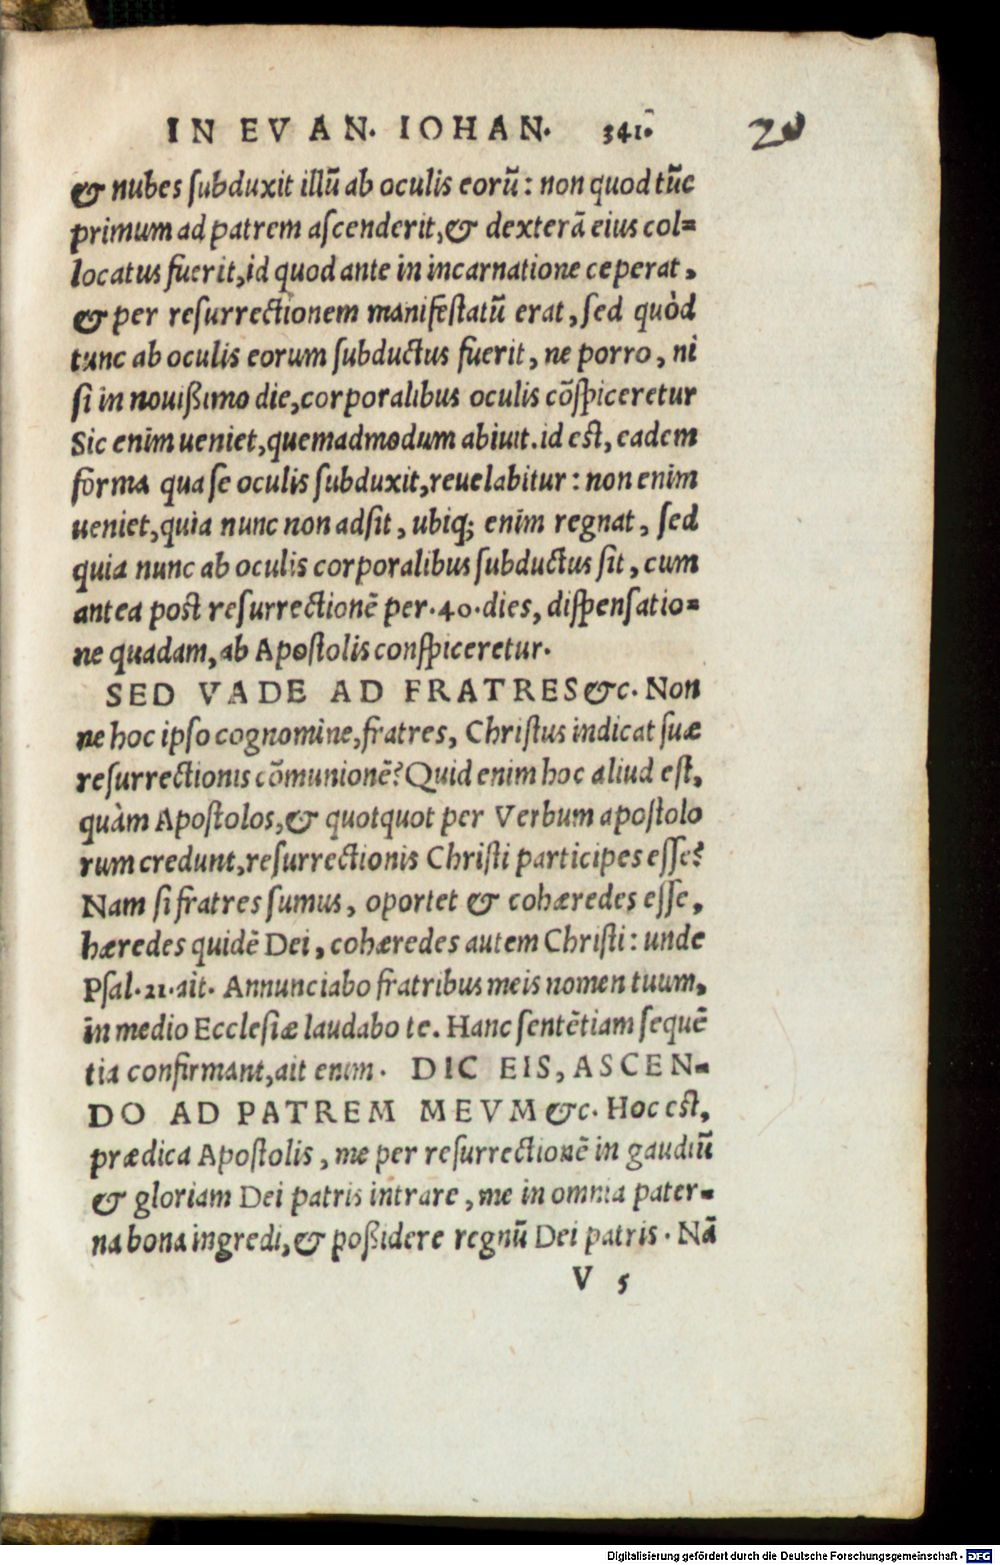 IN EVAN. IOHAN. 341. 20
& nubes ſubduxit illũ ab oculis eorũ: non quod tũc
primum ad patrem aſcenderit, & dexterã eius col=
locatus fuerit, id quod ante in incarnatione ceperat,
& per reſurrectionem manifeſtatũ erat, ſed quòd
tunc ab oculis eorum ſubductus fuerit, ne porro, ni
ſi in nouißimo die, corporalibus oculis cõſpiceretur
Sic enim ueniet, quemadmodum abiuit. id eſt, eadem
forma qua ſe oculis ſubduxit, reuelabitur: non enim
ueniet, quia nunc non adſit, ubiq; enim regnat, ſed
quia nunc ab oculis corporalibus ſubductus ſit, cum
antea poſt reſurrectionẽ per .40. dies, diſpenſatio=
ne quadam, ab Apoſtolis conſpiceretur.
SED VADE AD FRATRES &c. Non
ne hoc ipſo cognomine, fratres, Chriſtus indicat ſuæ
reſurrectionis cõmunionẽ? Quid enim hoc aliud eſt,
quàm Apoſtolos, & quotquot per Verbum apoſtolo
rum credunt, reſurrectionis Chriſti participes eſſe?
Nam ſi fratres ſumus, oportet & cohæredes eſſe,
hæredes quidẽ Dei, cohæredes autem Chriſti: unde
Pſal. 21. ait. Annunciabo fratribus meis nomen tuum,
in medio Eccleſiæ laudabo te. Hanc ſentẽtiam ſequẽ
tia confirmant, ait enim. DIC EIS, ASCEN=
DO AD PATREM MEVM &c. Hoc eſt,
prædica Apoſtolis, me per reſurrectionẽ in gaudiũ
& gloriam Dei patris intrare, me in omnia pater=
na bona ingredi, & poßidere regnũ Dei patris. Nã
V 5
Digitalisierung gefördert durch die Deutsche Forschungsgemeinschaft - DFG